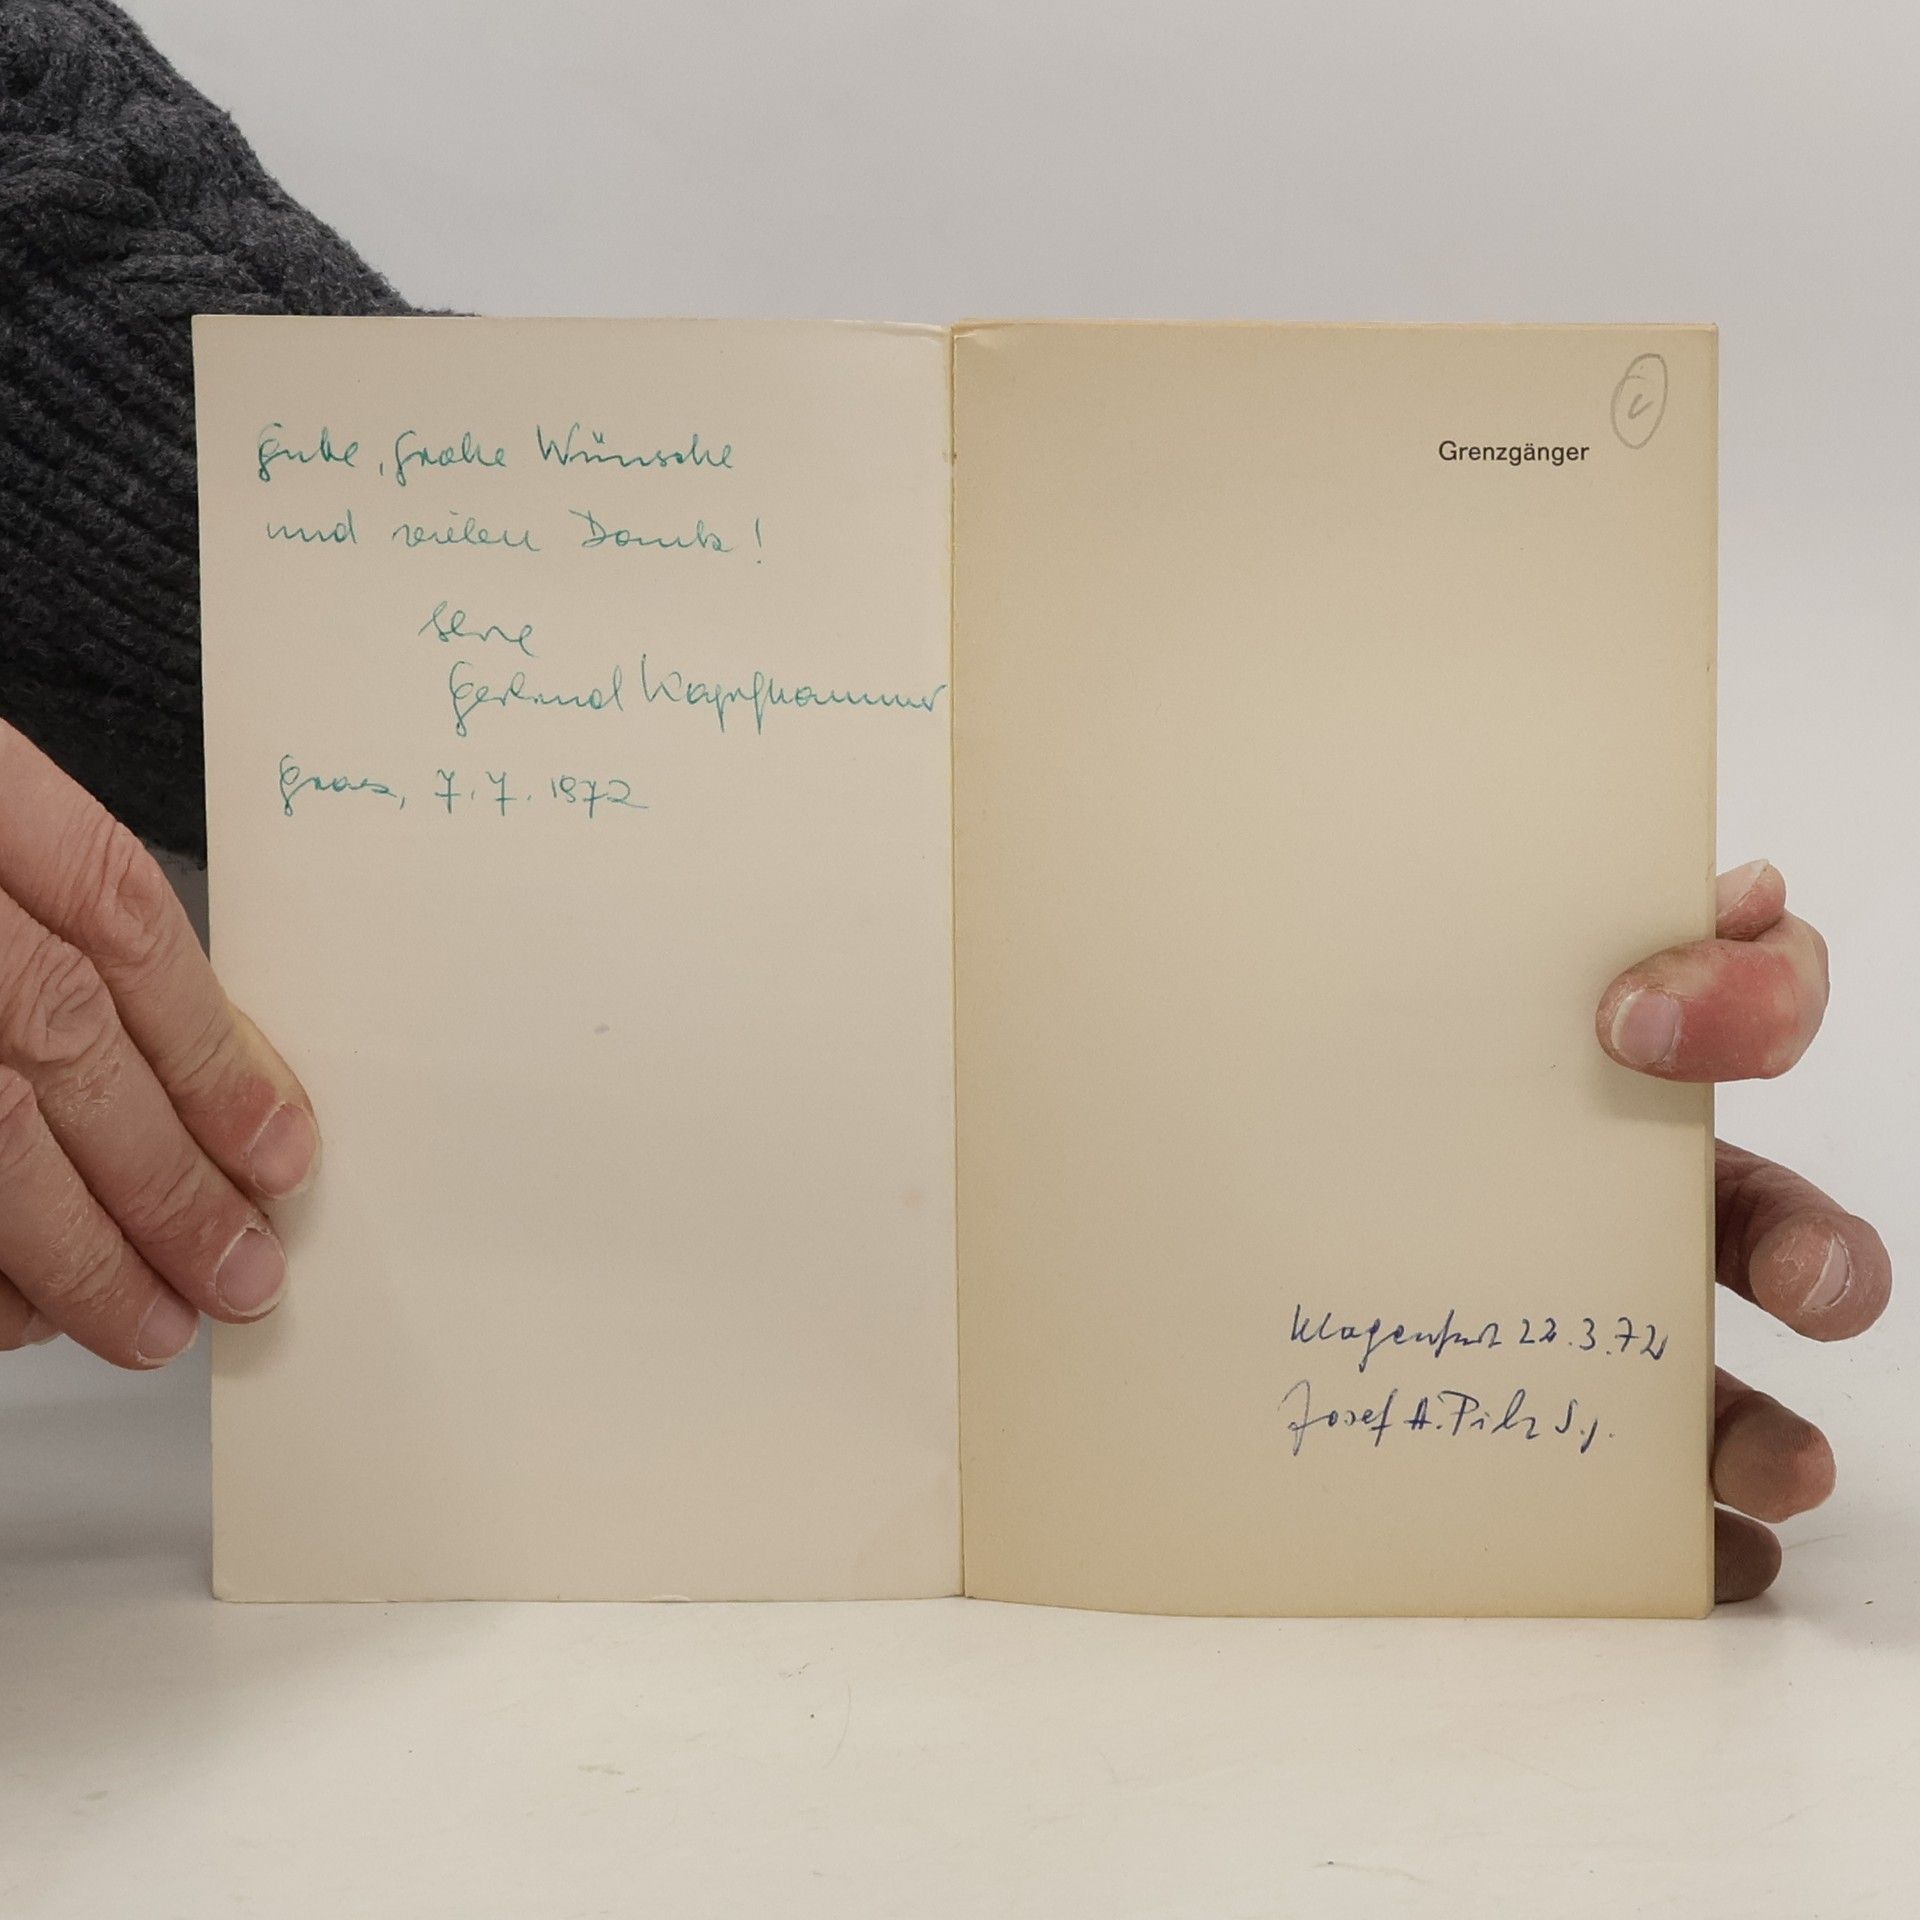 Gute, frohe Wünsche
und vielen Dank!
Gerlind Kapfhammer
Graz, 7.7.1972
Grenzgänger
Klagenfurt 22.3.72
Josef A. Pilz S.J.